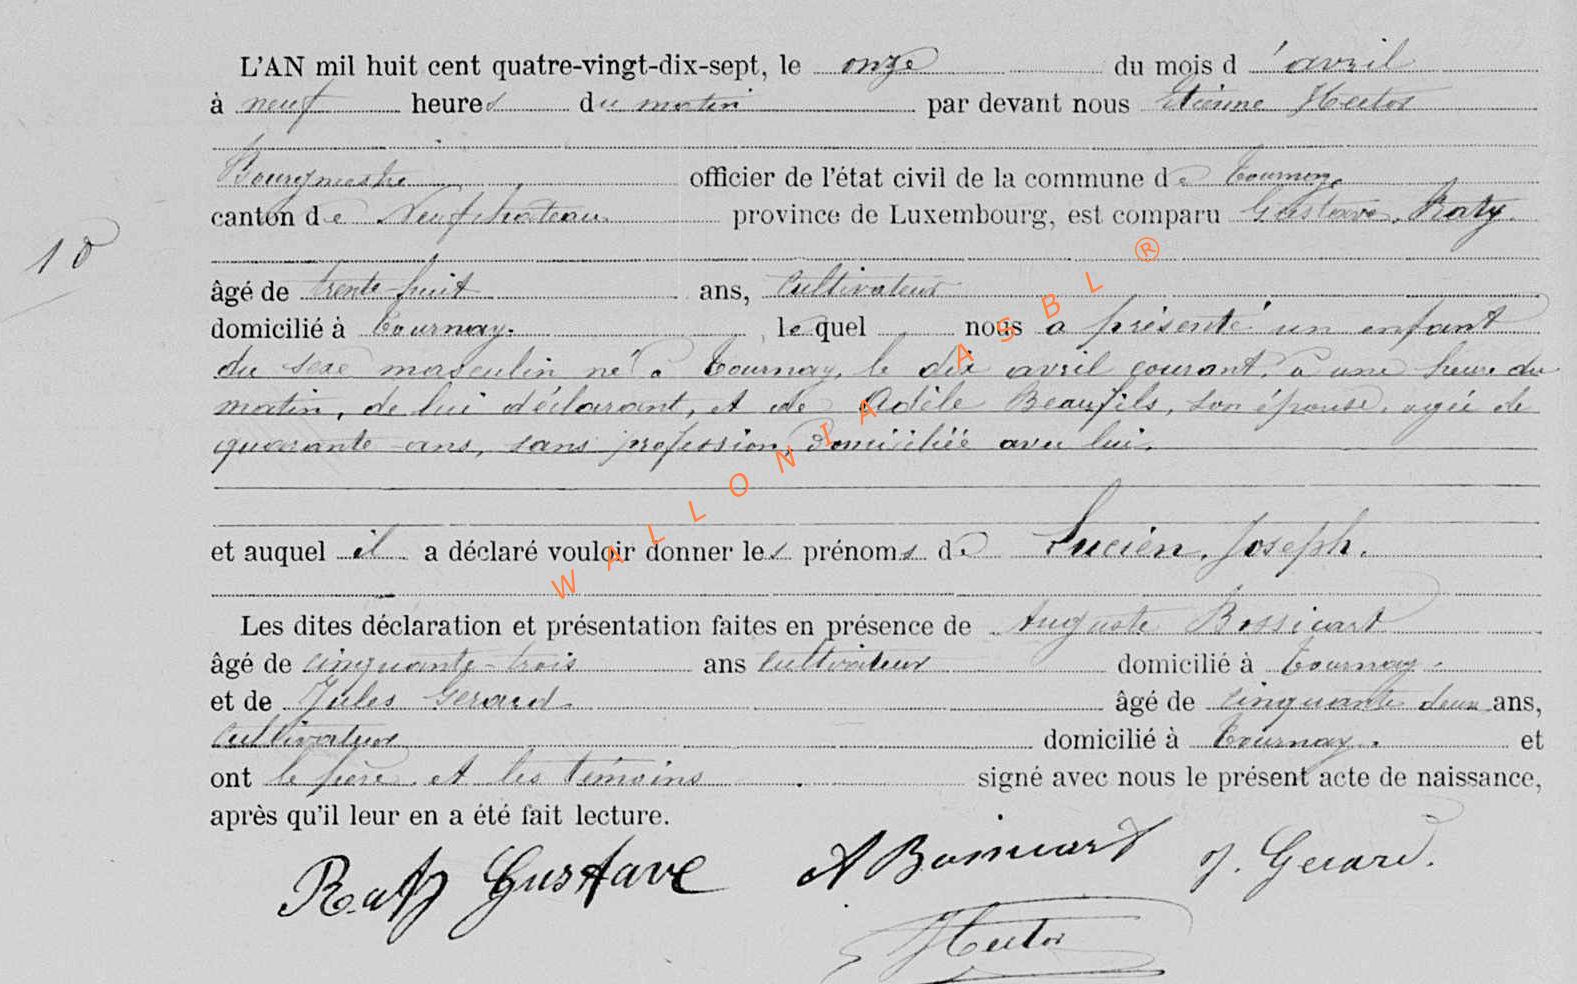 L'AN mil huit cent quatre-vingt-dix-sept, le onze du mois d'avril
à neuf heures du matin par devant nous Etienne Hector
Bourgmestre officier de l'état civil de la commune de Tournay
canton de Neufchâteau province de Luxembourg, est comparu Gustave, Raty
10
âgé de trente-huit ans, cultivateur
domicilié à Tournay. lequel nous a présenté un enfant
du sexe masculin né à Tournay, le dix avril courant, à une heure du
matin, de lui déclarant, et de Adèle Beaufils, son épouse, agée de
quarante ans, sans profession, domiciliée avec lui.
et auquel il a déclaré vouloir donner les prénoms de Lucien, Joseph.
Les dites déclaration et présentation faites en présence de Auguste Bossicart
âgé de cinquante-trois ans cultivateur domicilié à Tournay.
et de Jules Gerard âgé de cinquante deux ans,
cultivateur domicilié à Tournay. et
ont le père et les témoins signé avec nous le présent acte de naissance,
après qu'il leur en a été fait lecture.
Raty Gustave A Bossicart J. Gerard.
Hector
WALLONIA ASBL ®